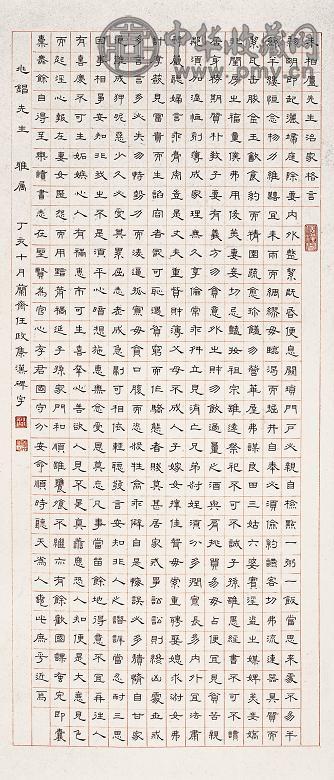 朱柏廬先生治家格言
黎明即起灑掃庭除要內外整潔既昏便息關鎖門戶必親自檢點一粥一飯當思來處不易半
絲半縷恒念物力維艱宜未雨而綢繆毋臨渴而掘井自奉必須儉約讌客切弗流連器具質而
潔瓦缶勝金玉飲食約而精園蔬愈珍饈勿營華屋弗謀良田三姑六婆實淫盜之媒婢美妾嬌
非閨房之福童僕弗用俊美妻妾切忌豔妝祖宗雖遠祭祀不可不誠子孫雖愚經書不可不讀
居身務期質樸教子要有義方勿貪意外之財勿飲過量之酒與肩挑貿易毋占便宜見貧苦親
鄰須加溫恤刻薄成家理無久享倫常乖舛立見消亡兄弟叔姪須分多潤寡長幼內外宜法肅
辭嚴聽婦言乖骨肉豈是丈夫重貲財薄父母不成人子嫁女擇佳壻毋索重聘娶媳求淑女弗
計厚奩見富貴而生諂容者最可恥遇貧窮而作驕態者賤莫甚居家戒爭訟訟則終凶處世戒
多言言多必失勿恃勢力而凌逼孤寡勿貪口腹而恣殺牲禽乖僻自是悔誤必多頹惰自甘家
道難成狎昵惡少久必受其累屈志老成急則可相依輕聽發言安知非人之譖訴當忍耐三思
因事相爭安知非我之不是須平心暗想施惠無念受恩莫忘凡事當留餘地得意不宜再往人
有喜慶不可生妒嫉心人有禍患不可生喜幸心善欲人見不是真善惡恐人知便是大惡見色
而起淫心報在妻女匿怨而用暗箭禍延子孫家門和順雖饔飧不繼亦有餘歡國課早完即囊
橐無餘自得至樂讀書志在聖賢為官心存君國守分安命順時聽天為人若此庶乎近焉
兆錩先生 雅屬 丁亥十月蘭齋任政集漢碑字
中华收藏网